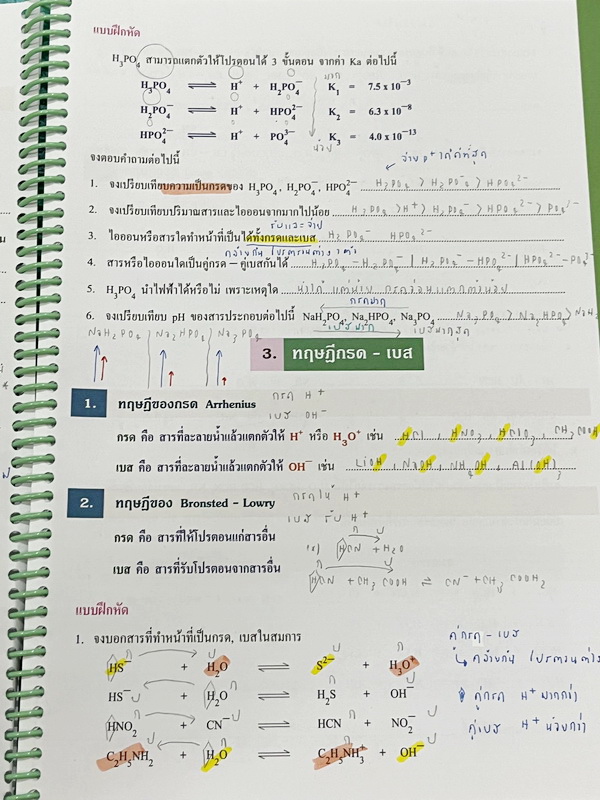 แบบฝึกหัด
H3PO4 สามารถแตกตัวให้โปรตอนได้ 3 ขั้นตอน จากค่า Ka ต่อไปนี้
มาก
H3PO4 ⇌ H+ + H2PO4− K1 = 7.5 x 10−3
H2PO4− ⇌ H+ + HPO42− K2 = 6.3 x 10−8
HPO42− ⇌ H+ + PO43− K3 = 4.0 x 10−13
น้อย
จงตอบคำถามต่อไปนี้
1. จงเปรียบเทียบความเป็นกรดของ H3PO4, H2PO4−, HPO42− H3PO4 > H2PO4− > HPO42−
2. จงเปรียบเทียบปริมาณสารและไอออนจากมากไปน้อย H3PO4 > H+ > H2PO4− > HPO42− > PO43−
รับและจ่าย
3. ไอออนหรือสารใดทำหน้าที่เป็นได้ทั้งกรดและเบส H2PO4− HPO42−
4. สารหรือไอออนใดเป็นคู่กรด – คู่เบสกันได้ H3PO4 – H2PO4− | H2PO4− – HPO42− | HPO42− – PO43−
5. H3PO4 นำไฟฟ้าได้หรือไม่ เพราะเหตุใด
กรดมาก
6. จงเปรียบเทียบ pH ของสารประกอบต่อไปนี้ NaH2PO4, Na2HPO4, Na3PO4 Na3PO4 > Na2HPO4 >
เบสมาก เบสมากสุด
NaH2PO4 | Na2HPO4 | Na3PO4
3. ทฤษฎีกรด – เบส
1. ทฤษฎีของกรด Arrhenius
กรด H+
เบส OH−
กรด คือ สารที่ละลายน้ำแล้วแตกตัวให้ H+ หรือ H3O+ เช่น HCl, HNO3, HClO3, CH3COOH
เบส คือ สารที่ละลายน้ำแล้วแตกตัวให้ OH− เช่น LiOH, NaOH, NH4OH, Al(OH)3
2. ทฤษฎีของ Bronsted – Lowry
กรดให้ H+
เบส รับ H+
กรด คือ สารที่ให้โปรตอนแก่สารอื่น
ก บ
HCN + H2O
เบส คือ สารที่รับโปรตอนจากสารอื่น
HCN + CH3COOH ⇌ CN− + CH3COOH2
แบบฝึกหัด
1. จงบอกสารที่ทำหน้าที่เป็นกรด, เบสในสมการ
คู่กรด - เบส
HS− + H2O ⇌ S2− + H3O+
HS− + H2O ⇌ H2S + OH−
คู่กรด H+ มากกว่า
HNO2 + CN− ⇌ HCN + NO2−
คู่เบส H+ น้อยกว่า
C2H5NH2 + H2O ⇌ C2H5NH3+ + OH−